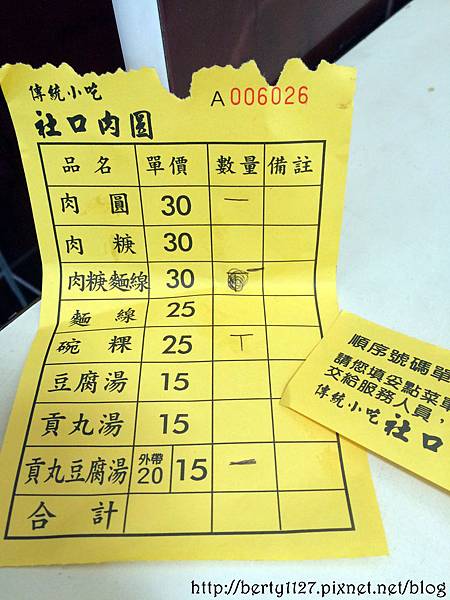 傳統小吃
A 006026
社口肉圓
品名 單價 數量 備註
肉圓 30 一
肉糠 30
肉糠麵線 30 一
麵線 25
碗粿 25 丅
豆腐湯 15
貢丸湯 15
貢丸豆腐湯 外帶20 15 一
合計
順序號碼單
請您填妥點菜單
交給服務人員,
傳統小吃 社口
http://berty1127.pixnet.net/blog